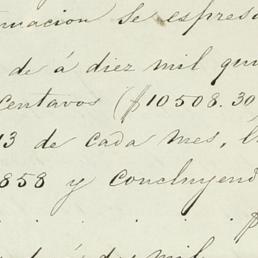 nuacion se expresa
de á diez mil qui
centavos ($10508.30
13 de cada mes,
1858 y concluyend
. . . . . $